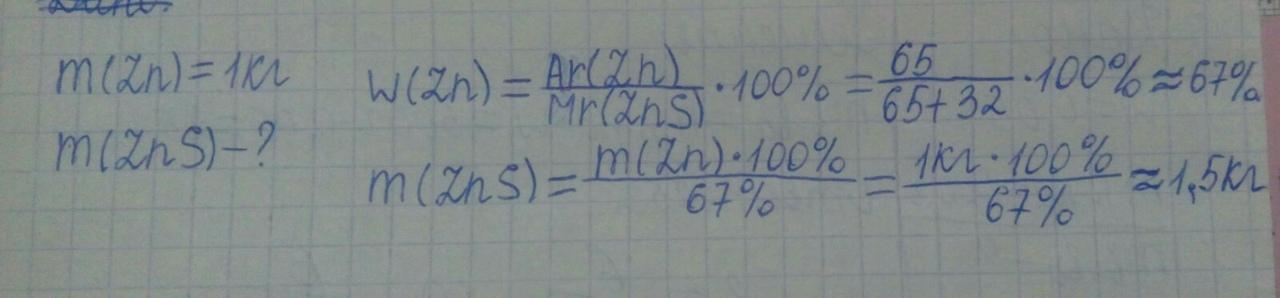 m(Zn) = 1кг
m(ZnS) – ?
W(Zn) = Ar(Zn) / Mr(ZnS) · 100% = 65 / 65+32 · 100% ≈ 67%
m(ZnS) = m(Zn) · 100% / 67% = 1кг · 100% / 67% ≈ 1,5кг